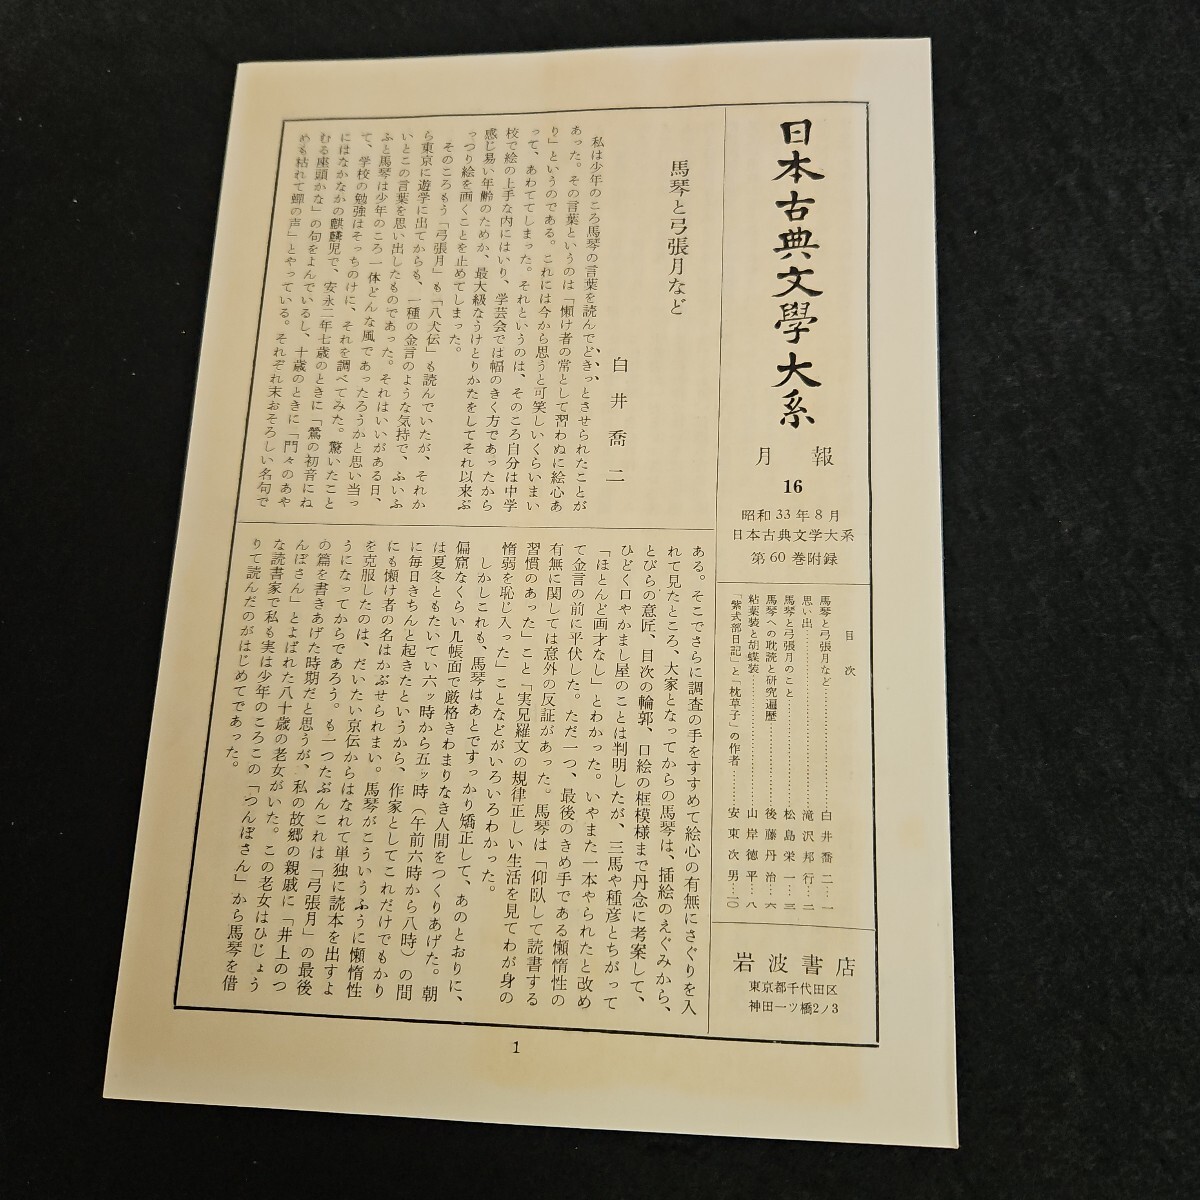 日本古典文學大系
月報
16
昭和33年8月
日本古典文学大系
第60巻附録
目次
馬琴と弓張月など……白井喬二…一
思い出……滝沢邦行…二
馬琴と弓張月のこと……松島栄一…三
馬琴への耽読と研究遍歴……後藤丹治…六
粘葉装と胡蝶装……山岸徳平…八
「紫式部日記」と「枕草子」の作者……安東次男…一〇
岩波書店
東京都千代田区
神田一ツ橋2ノ3
馬琴と弓張月など
白井喬二
私は少年のころ馬琴の言葉を読んでどきっとさせられたことが
あった。その言葉というのは「懶け者の常として習わぬに絵心あ
り」というのである。これには今から思うと可笑しいくらいまい
って、あわててしまった。それというのは、そのころ自分は中学
校で絵の上手な内にはいり、学芸会では幅のきく方であったから
感じ易い年齢のためか、最大級なうけとりかたをしてそれ以来ぷ
っつり絵を画くことを止めてしまった。
そのころもう「弓張月」も「八犬伝」も読んでいたが、それか
ら東京に遊学に出てからも、一種の金言のような気持で、ふいふ
いとこの言葉を思い出したものであった。それはいいがある日、
ふと馬琴は少年のころ一体どんな風であったろうかと思い当っ
て、学校の勉強はそっちのけに、それを調べてみた。驚いたこと
にはなかなかの麒麟児で、安永二年七歳のときに「鶯の初音にね
むる座頭かな」の句をよんでいるし、十歳のときに「門々のあや
めも枯れて蟬の声」とやっている。それぞれ末おそろしい名句で
ある。そこでさらに調査の手をすすめて絵心の有無にさぐりを入
れて見たところ、大家となってからの馬琴は、挿絵のえぐみから、
とびらの意匠、目次の輪郭、口絵の框模様まで丹念に考案して、
ひどく口やかまし屋のことは判明したが、三馬や種彦とちがって
「ほとんど画才なし」とわかった。いやまた一本やられたと改め
て金言の前に平伏した。ただ一つ、最後のきめ手である懶惰性の
有無に関しては意外の反証があった。馬琴は「仰臥して読書する
習慣のあった」こと「実兄羅文の規律正しい生活を見てわが身の
惰弱を恥じ入った」ことなどがいろいろわかった。
しかしこれも、馬琴はあとですっかり矯正して、あのとおりに、
偏窟なくらい几帳面で厳格きわまりなき人間をつくりあげた。朝
は夏冬ともたいてい六ッ時から五ッ時（午前六時から八時）の間
に毎日きちんと起きたというから、作家としてこれだけでもかり
にも懶け者の名はかぶせられまい。馬琴がこういうふうに懶惰性
を克服したのは、だいたい京伝からはなれて単独に読本を出すよ
うになってからであろう。も一つたぶんこれは「弓張月」の最後
の篇を書きあげた時期だと思うが、私の故郷の親戚に「井上のつ
んぼさん」とよばれた八十歳の老女がいた。この老女はひじょう
な読書家で私も実は少年のころこの「つんぼさん」から馬琴を借
りて読んだのがはじめてであった。
1